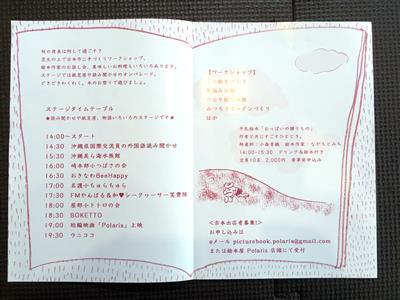 秋の夜長は何して過ごす？
星空の下で古本市に手づくりワークショップ。
絵本作家のお話し会、美味しいお料理もいろいろあります。
ステージでは紙芝居や読み聞かせのオンパレード。
どきどきわくわく。本のお祭りで遊びましょ。
ステージタイムテーブル
★読み聞かせや紙芝居、物語いろいろのステージです★
14:00〜スタート
14:30 沖縄県国際交流員の外国語読み聞かせ
15:30 沖縄美ら海水族館
16:00 崎本部小つばさの会
16:30 おきなわBeeHappy
17:00 名護小ちゅらちゅら
17:30 FMやんばる&和♥シークヮーサー笑賛隊
18:00 屋部小トトロの会
18:30 BOKETTO
19:00 短編映画「Polaris」上映
19:30 ウニココ
【ワークショップ】
みつろうキャンドルづくり
ほか
牛乳絵本「おっぱいの贈りもの」
作者と共にすごすひととき。
14:00-15:30 ドリンク&絵本付き
定員10名 2,000円 要事前申込み
<古本出店者募集!>
お申し込みは
eメール picturebook.polaris@gmail.com
または絵本屋 Polaris 店頭にて受付